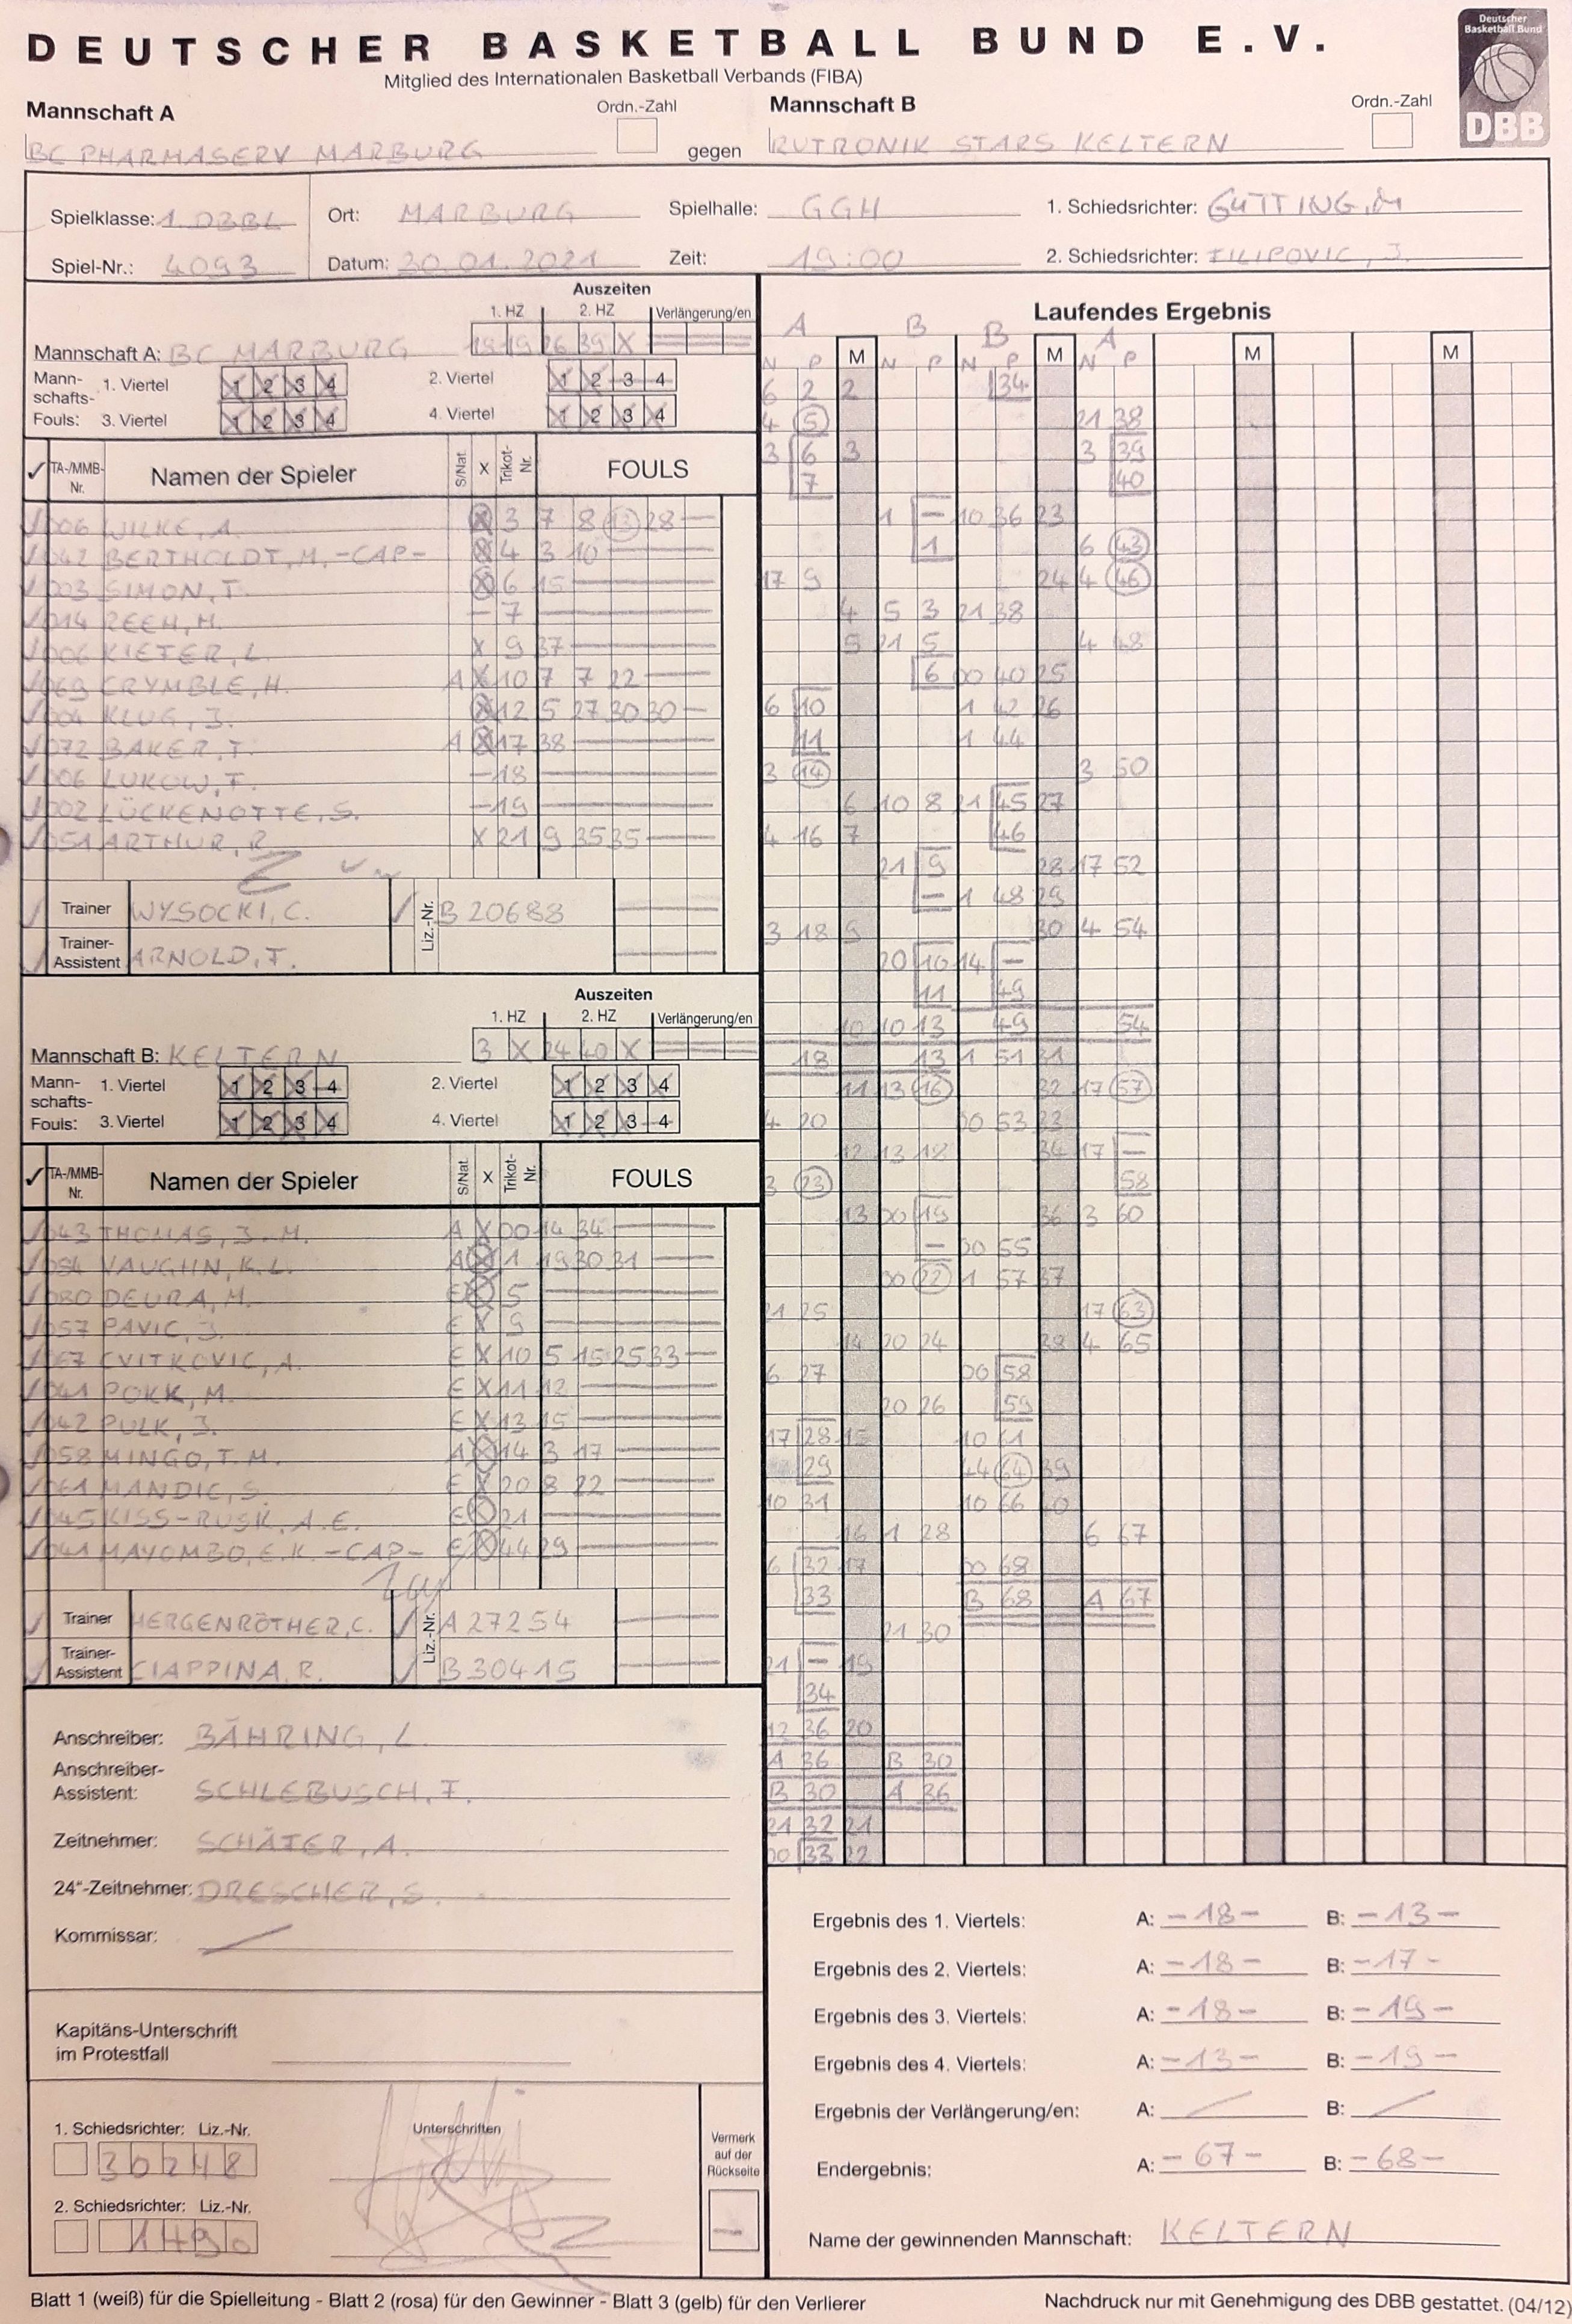 DEUTSCHER BASKETBALL BUND E.V.
Mitglied des Internationalen Basketball Verbands (FIBA)
Deutscher Basketball Bund
DBB
Mannschaft A Ordn.-Zahl Mannschaft B Ordn.-Zahl
BC PHARMASERV MARBURG gegen RUTRONIK STARS KELTERN
Spielklasse: 1. DBBL Ort: MARBURG Spielhalle: GGH 1. Schiedsrichter: GÜTTING, M
Spiel-Nr.: 4093 Datum: 30.01.2021 Zeit: 19:00 2. Schiedsrichter: FILIPOVIC, J.
Auszeiten
1. HZ 2. HZ Verlängerung/en
Mannschaft A: BC MARBURG 19 19 26 39 X
Mannschafts-Fouls: 1. Viertel 1 2 3 4 2. Viertel 1 2 3 4
3. Viertel 1 2 3 4 4. Viertel 1 2 3 4
✓ TA-/MMB-Nr. Namen der Spieler S/Nat. X Trikot-Nr. FOULS
006 WILKE, A. X 3 7 8 13 28
042 BERTHOLDT, M. -CAP- X 4 3 10
003 SIMON, T. X 6 15
014 REEH, M. - 7
006 KIEFER, L. X 9 37
069 CRYMBLE, H. A X 10 7 7 22
004 KLUG, J. X 12 5 27 30 30
072 BAKER, T. A X 17 38
006 LUKOW, T. - 18
002 LÜCKENOTTE, S. - 19
051 ARTHUR, R. X 21 9 35 35
Trainer WYSOCKI, C. Liz.-Nr. B 20688
Trainer-Assistent ARNOLD, F.
Auszeiten
1. HZ 2. HZ Verlängerung/en
Mannschaft B: KELTERN 3 X 24 40 X
Mannschafts-Fouls: 1. Viertel 1 2 3 4 2. Viertel 1 2 3 4
3. Viertel 1 2 3 4 4. Viertel 1 2 3 4
✓ TA-/MMB-Nr. Namen der Spieler S/Nat. X Trikot-Nr. FOULS
043 THOMAS, J. M. A X 00 14 34
084 VAUGHN, K. L. A X 1 19 30 31
080 DEURA, M. E X 5
057 PAVIC, J. E X 9
067 CVITKOVIC, A. E X 10 5 15 25 33
041 POKK, M. E X 11 12
042 PULK, J. E X 13 15
058 MINGO, T. M. A X 14 3 17
061 MANDIC, S. E X 20 8 22
045 KISS-RUSK, A. E. E X 21
041 MAYOMBO, E. K. -CAP- E X 44 29
Trainer HERGENRÖTHER, C. Liz.-Nr. A 27254
Trainer-Assistent CIAPPINA, R. B 30415
Anschreiber: BÄHRING, L.
Anschreiber-Assistent: SCHLEBUSCH, F.
Zeitnehmer: SCHÄFER, A.
24“-Zeitnehmer: DRESCHER, S.
Kommissar:
Kapitäns-Unterschrift
im Protestfall
1. Schiedsrichter: Liz.-Nr. Unterschriften
30248
2. Schiedsrichter: Liz.-Nr.
1490
Vermerk auf der Rückseite
Laufendes Ergebnis
A B B A
N P M N P N P M N P M M
6 2 2 34
4 5 21 38
3 6 3 3 39
7 40
1 - 10 36 23
1 6 43
17 9 24 4 46
4 5 3 21 38
5 21 5 4 48
6 00 40 25
6 10 1 42 26
11 1 44
3 14 3 50
6 10 8 21 45 27
4 16 7 46
21 9 28 17 52
- 1 48 29
3 18 9 30 4 54
20 10 14 -
11 49
10 10 13 49 54
18 13 1 51 31
11 13 16 32 17 57
4 20 00 53 33
12 13 18 34 17 -
3 23 58
13 00 19 36 3 60
- 00 55
00 22 1 57 37
21 25 17 63
14 20 24 38 4 65
6 27 00 58
20 26 59
17 28 15 10 61
29 44 64 39
10 31 10 66 40
16 1 28 6 67
6 32 17 00 68
33 B 68 A 67
21 30
21 - 19
34
12 36 20
A 36 B 30
B 30 A 36
21 32 21
00 33 22
Ergebnis des 1. Viertels: A: -18- B: -13-
Ergebnis des 2. Viertels: A: -18- B: -17-
Ergebnis des 3. Viertels: A: -18- B: -19-
Ergebnis des 4. Viertels: A: -13- B: -19-
Ergebnis der Verlängerung/en: A: B:
Endergebnis: A: -67- B: -68-
Name der gewinnenden Mannschaft: KELTERN
Blatt 1 (weiß) für die Spielleitung - Blatt 2 (rosa) für den Gewinner - Blatt 3 (gelb) für den Verlierer
Nachdruck nur mit Genehmigung des DBB gestattet. (04/12)